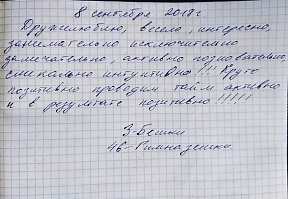 8 сентября 2018г
Дружелюбно, весело, интересно,
занимательно исключительно
замечательно, активно познавательно,
смекально интуитивно!!! Круто
позитивно проводим тайм активно
и в результате позитивно!!!!!
3-Бешки
46-Гимназешки